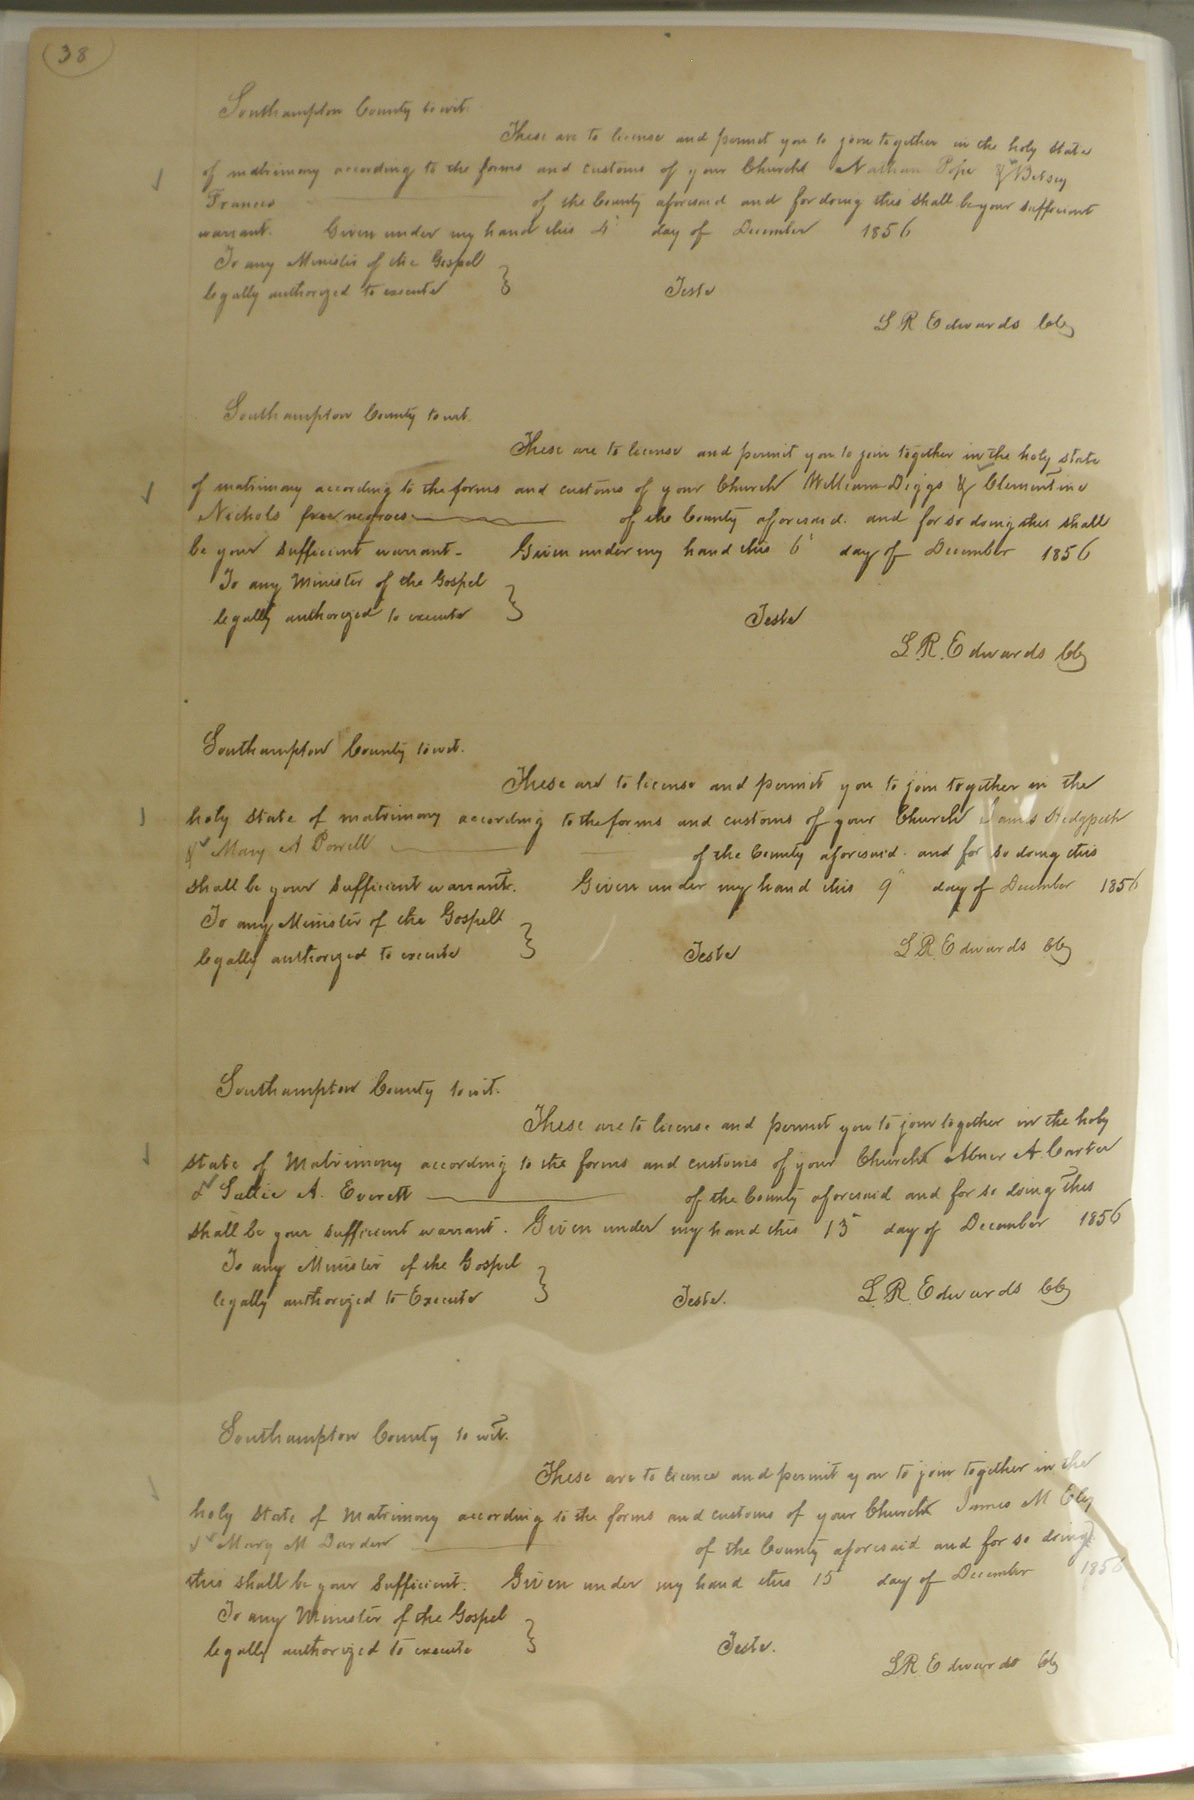 38
Southampton County towit.
These are to license and permit you to join together in the holy state
of matrimony according to the forms and customs of your Church Nathan Pope & Betsey
Frances of the County aforesaid and for doing this shall be your sufficient
warrant. Given under my hand this 4 day of December 1856
To any Minister of the Gospel
legally authorized to execute } Teste
L R Edwards Clk
Southampton County towit.
These are to license and permit you to join together in the holy state
of matrimony according to the forms and customs of your Church William Diggs & Clementine
Nichols free negroes of the County aforesaid. and for so doing this shall
be your sufficient warrant - Given under my hand this 6 day of December 1856
To any Minister of the Gospel
legally authorized to execute } Teste
L. R. Edwards Clk
Southampton County towit.
These are to license and permit you to join together in the
holy state of matrimony according to the forms and customs of your Church James Hedgpeth
& Mary A Powell of the County aforesaid. and for so doing this
shall be your sufficient warrant. Given under my hand this 9" day of December 1856
To any Minister of the Gospel
legally authorized to execute } Teste L. R. Edwards Clk
Southampton County towit.
These are to license and permit you to join together in the holy
state of Matrimony according to the forms and customs of your Church Abner A. Carter
& Sallie A. Everett of the County aforesaid and for so doing this
shall be your sufficient warrant. Given under my hand this 15 day of December 1856
To any Minister of the Gospel
legally authorized to Execute } Teste. L. R. Edwards Clk
Southampton County to wit.
These are to licence and permit you to join together in the
holy state of Matrimony according to the forms and customs of your Church James M
& Mary M Darden of the County aforesaid and for so doing
this shall be your Sufficient. Given under my hand this 15 day of December 1856
To any Minister of the Gospel
legally authorized to execute } Teste.
L R Edwards Clk